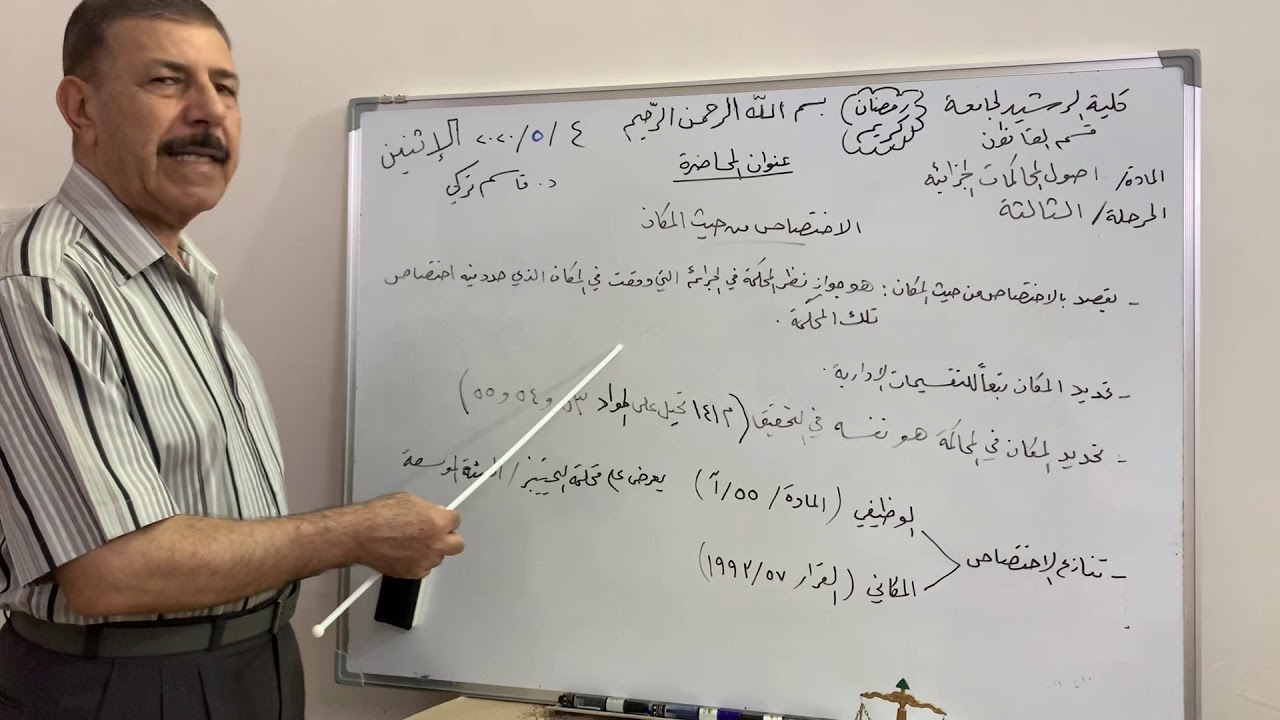 بسم الله الرحمن الرحيم
كلية الرشيد الجامعة
قسم القانون
رمضان
كريم
الإثنين ٤ / ٥ / ٢٠٢٠
د. قاسم تركي
المادة/ اصول المحاكمات الجزائية
المرحلة/ الثالثة
عنوان المحاضرة
الاختصاص من حيث المكان
- يقصد بالاختصاص من حيث المكان : هو جواز نظر المحكمة في الجرائم التي وقعت في المكان الذي حدد فيه اختصاص
تلك المحكمة .
- تحديد المكان تبعاً للتقسيمات الإدارية .
- تحديد المكان في المحاكمة هو نفسه في التحقيق (م ١٤١ تحيل على المواد ٥٣ و ٥٤ و ٥٥)
- تنازع الاختصاص
الوظيفي (المادة/ ٥٥/أ) يعرض على محكمة التمييز / الهيئة الموسعة
المكاني (القرار ٥٧/ ١٩٩٢)